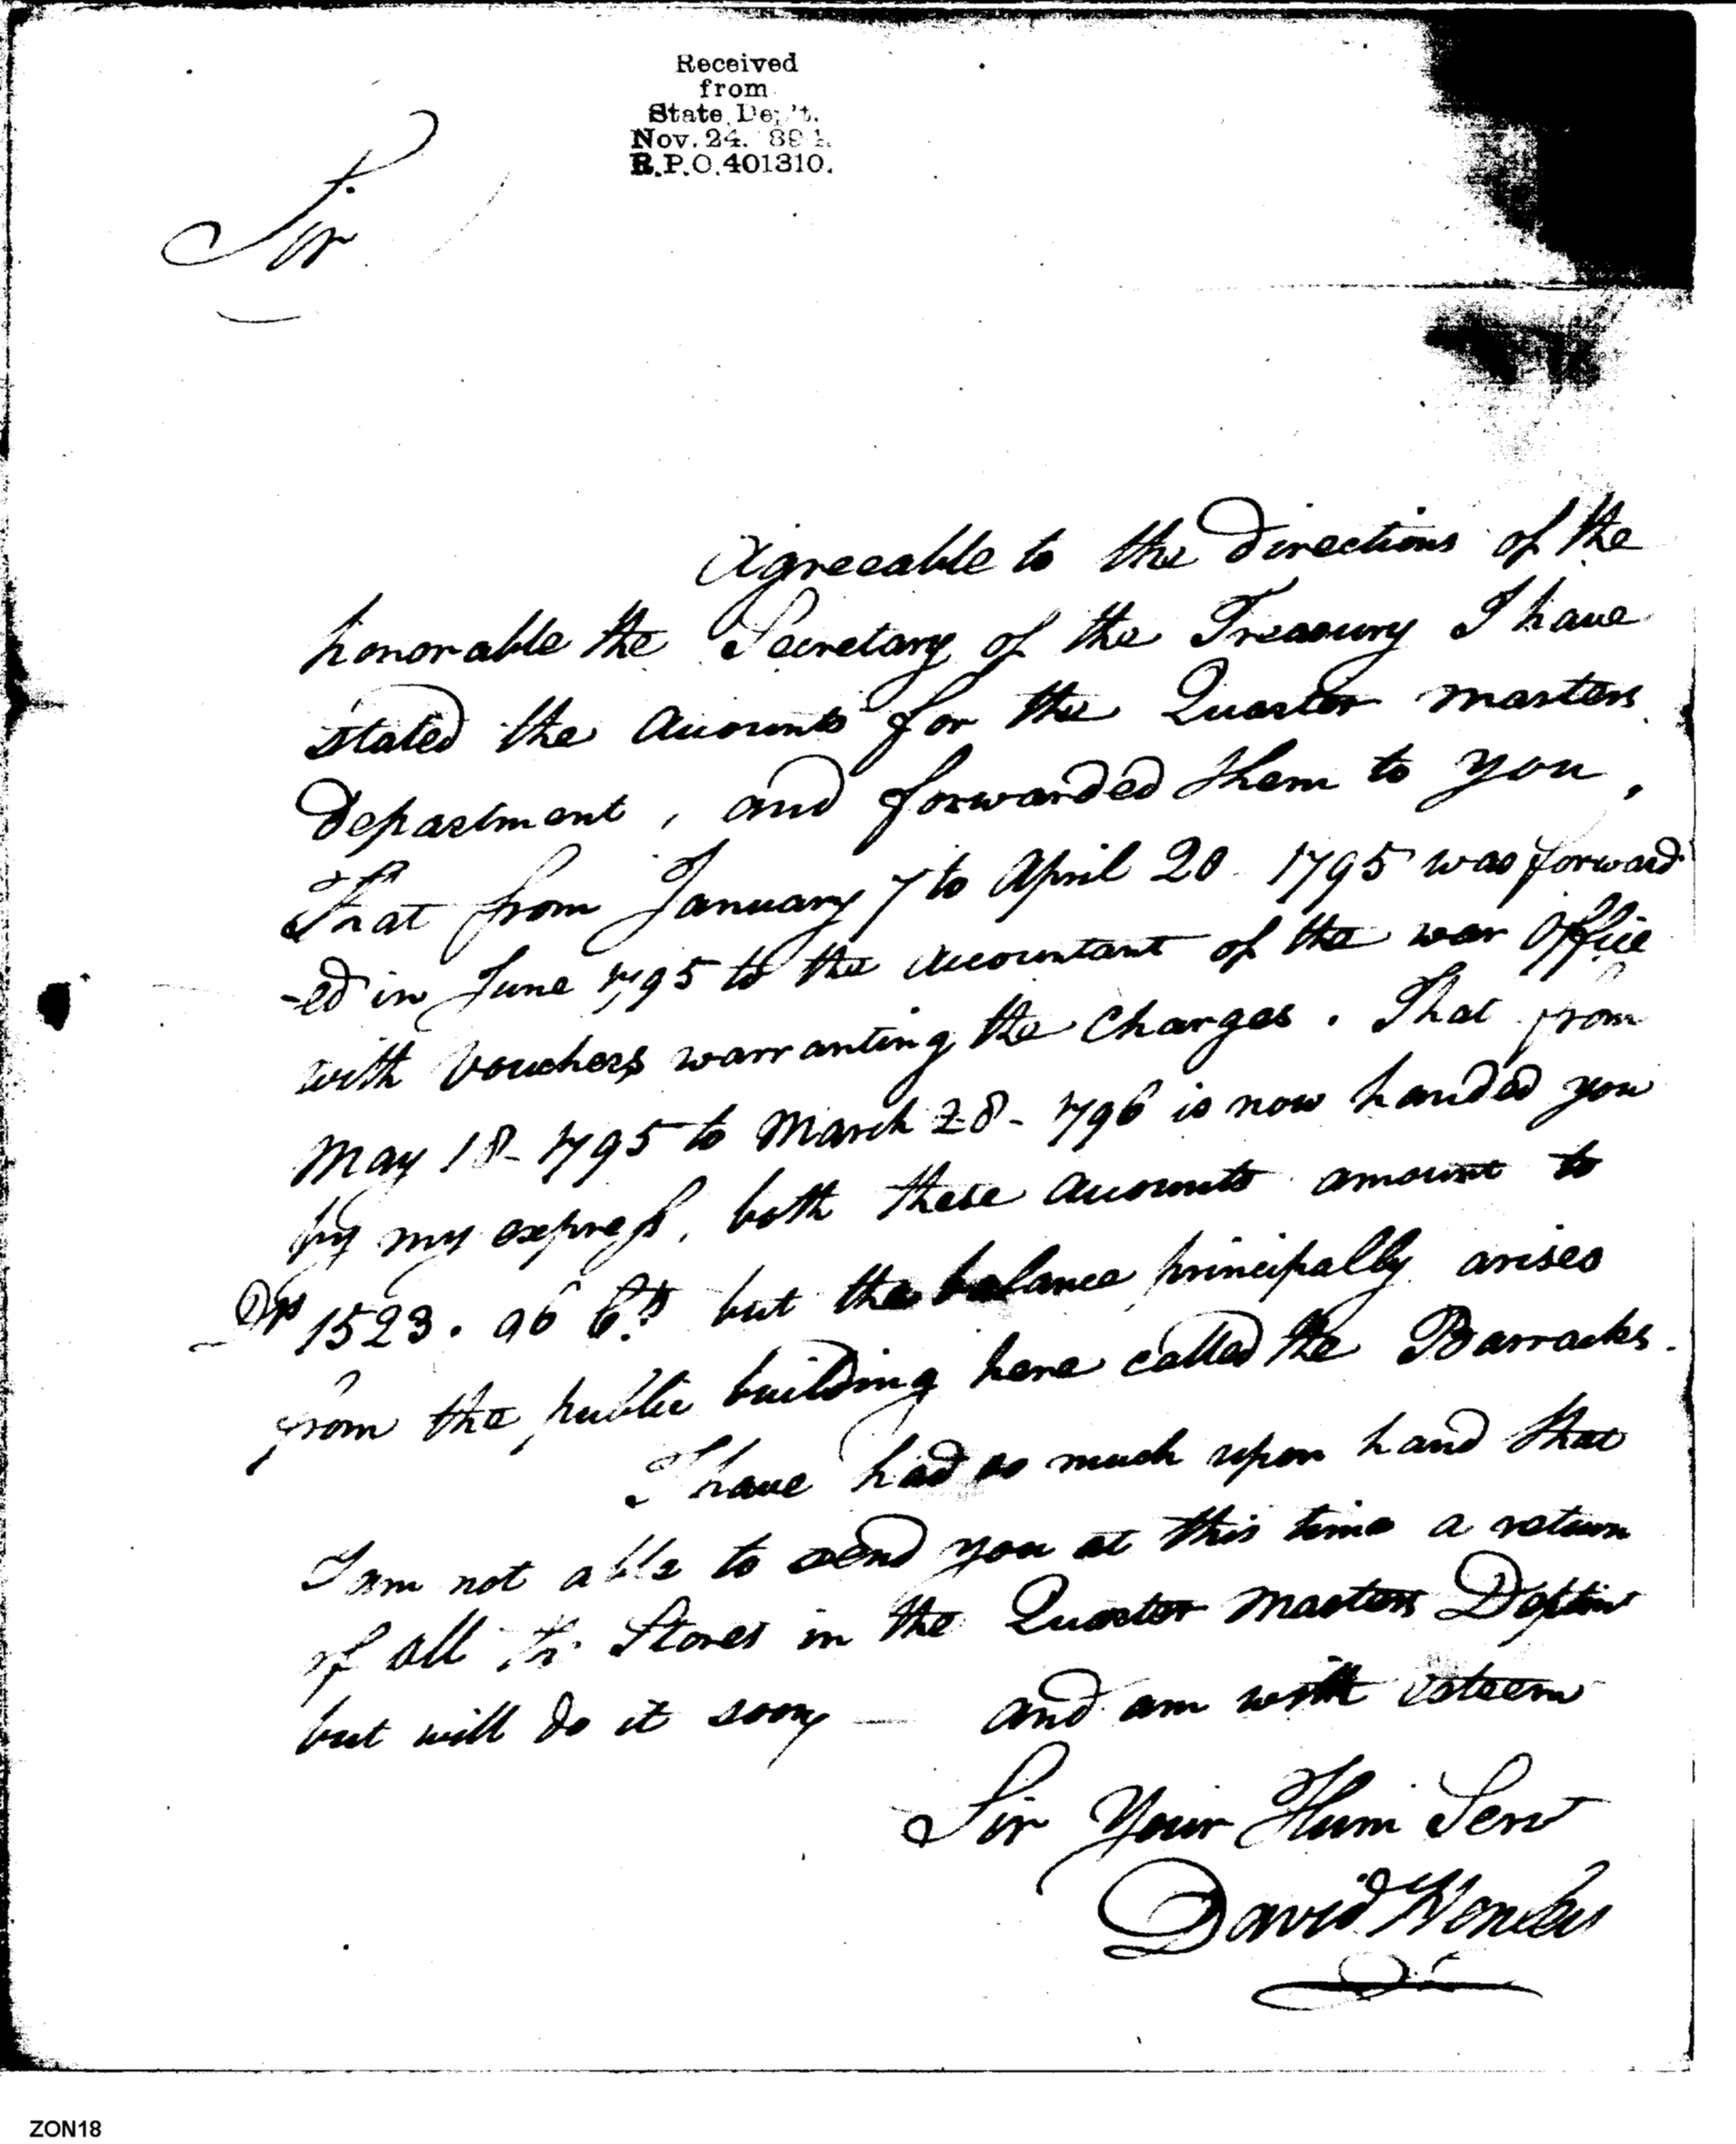 Received
from
State Dep't.
Nov. 24. 189
R.P.O. 401310.
Sir
Agreeable to the directions of the
honorable the Secretary of the Treasury I have
stated the accounts for the Quarter masters
department, and forwarded them to you,
That from January 7 to April 20 1795 was forward
-ed in June 1795 to the accountant of the war office
with vouchers warranting the charges. That from
May 18- 1795 to March 28- 1796 is now handed you
by my express, both these accounts amount to
1523. 96 but the balance principally arises
from the public building here called the Barracks.
I have had so much upon hand that
I am not able to send you at this time a return
of all the Stores in the Quarter masters Deptm
but will do it soon — and am with esteem
Sir Your Hum Serv
David Henley
ZON18